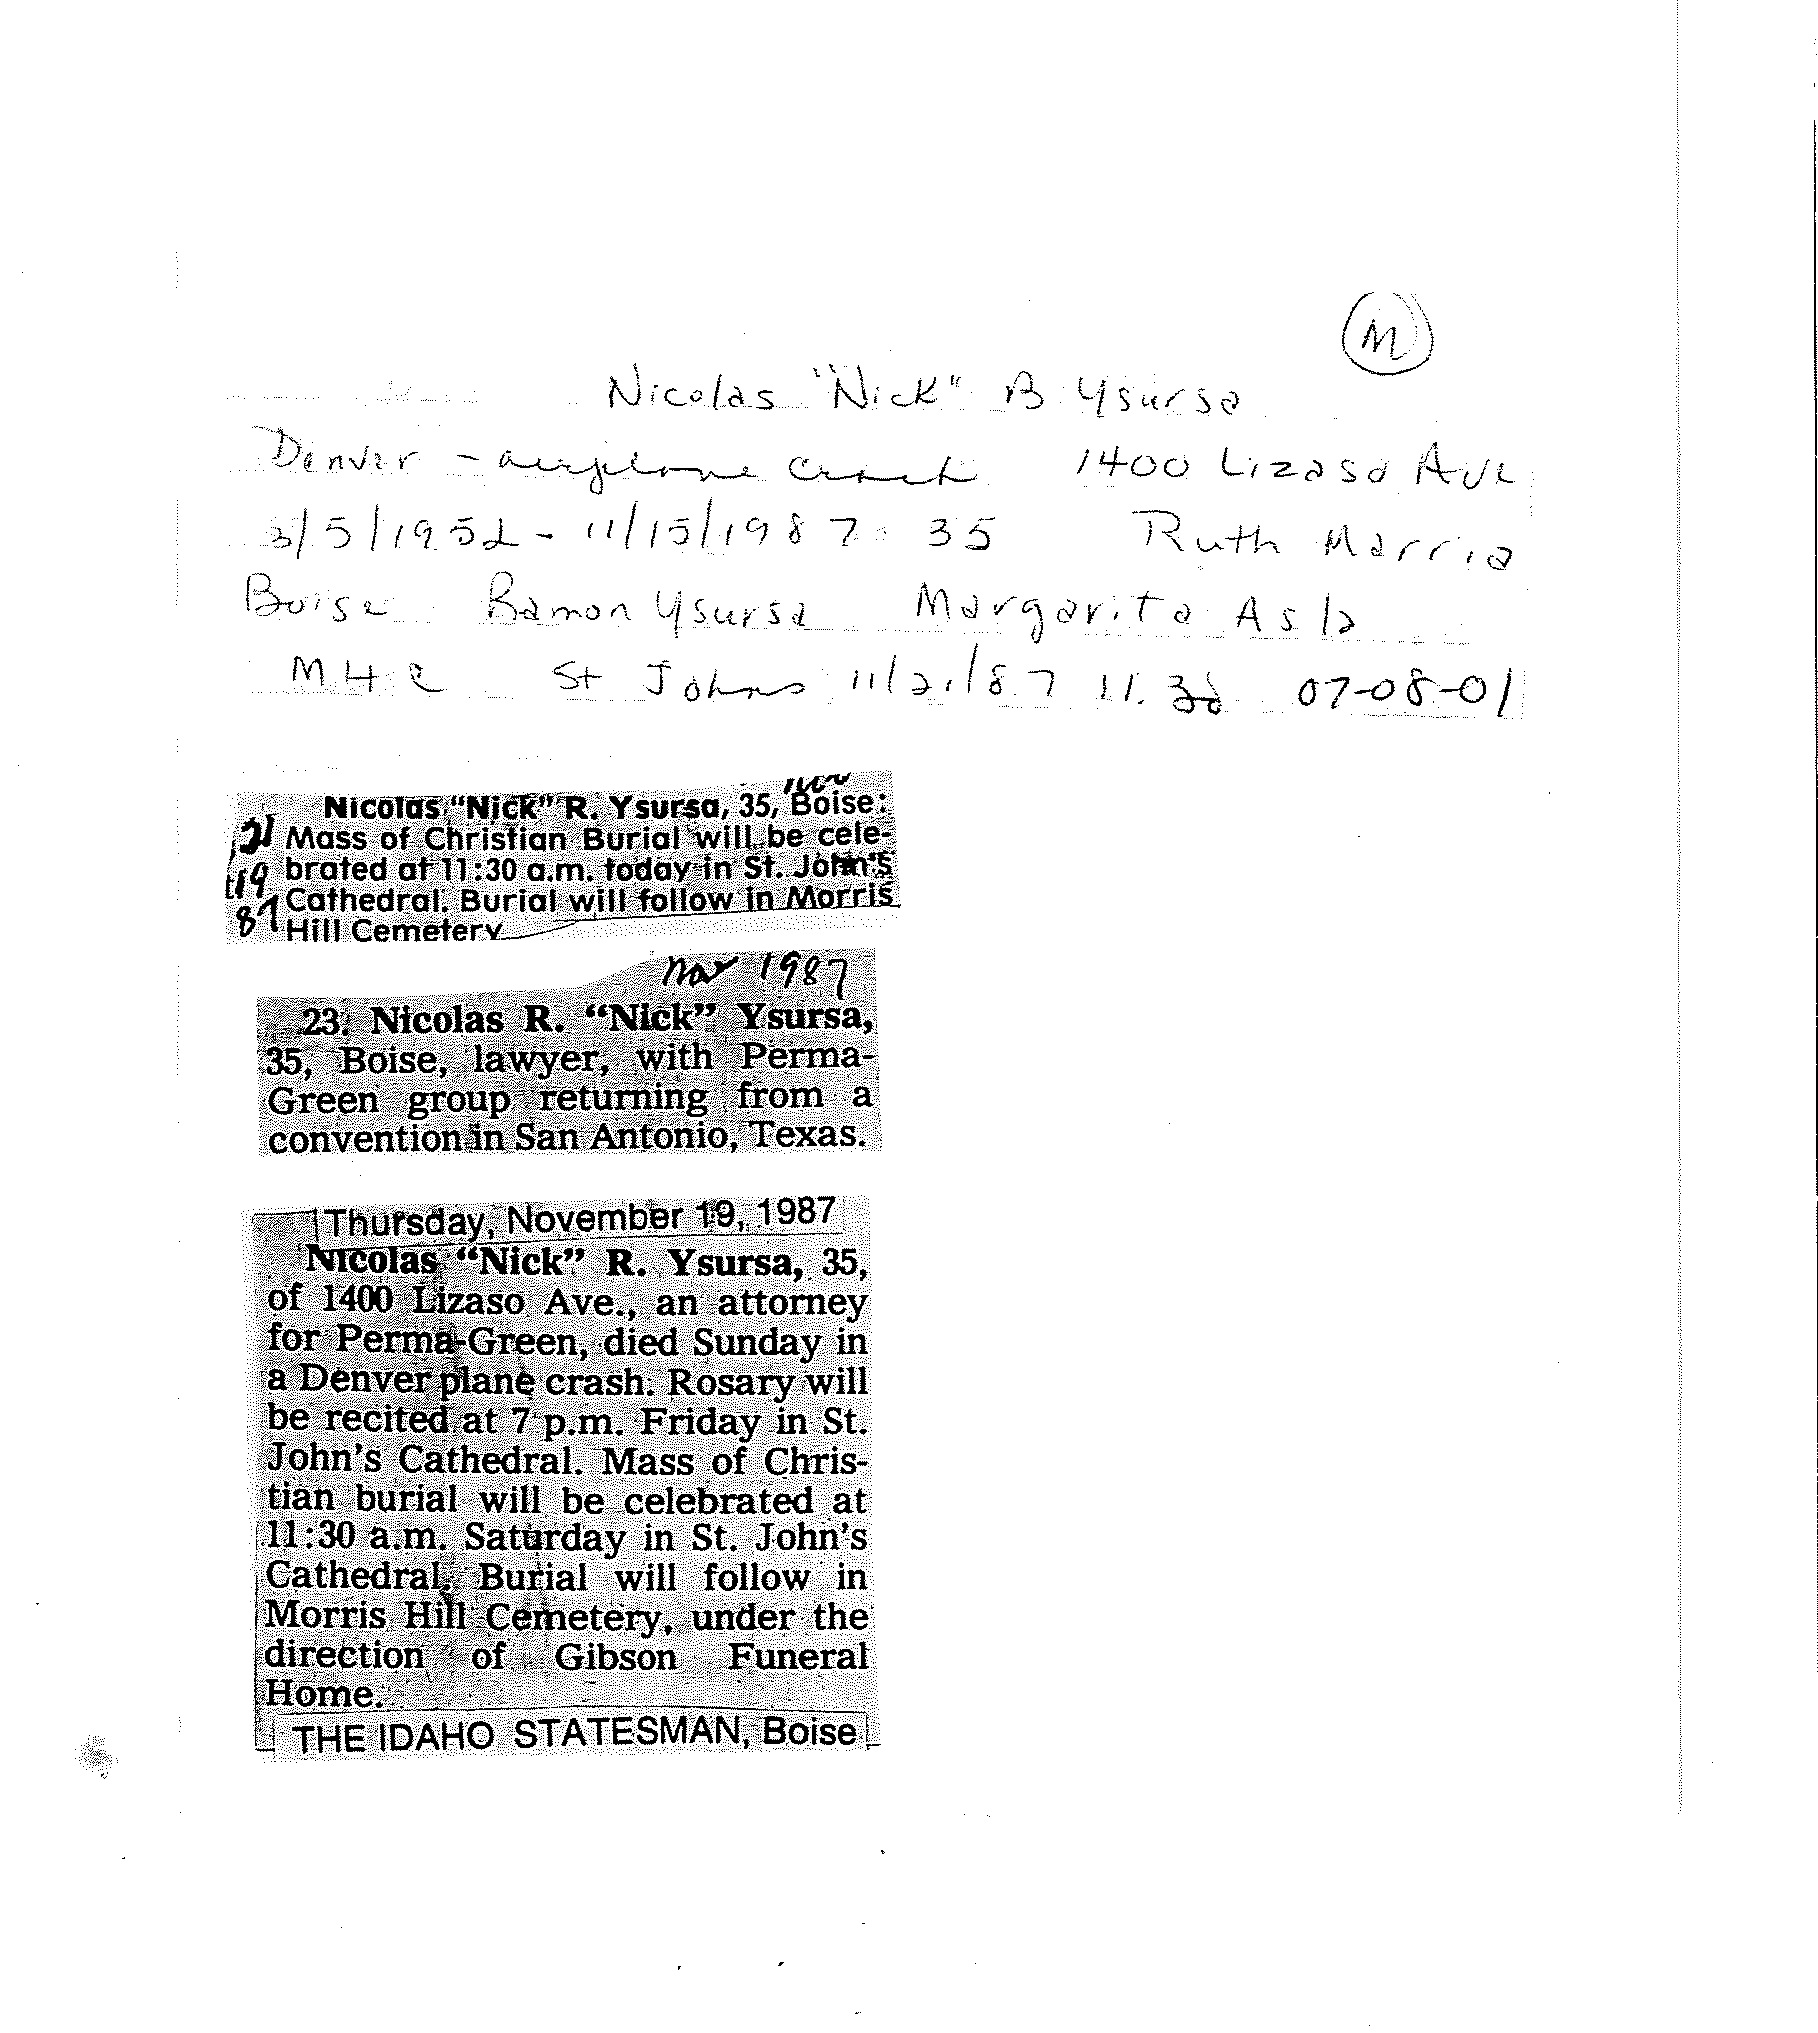 M
Nicolas "Nick" B Ysursa
Denver - airplane crash 1400 Lizaso Ave
3/5/1952 - 11/15/1987 35 Ruth Marria
Boise Ramon Ysursa Margarita Asla
MHC St Johns 11/21/87 11.30 07-08-01
Nov
Nicolas "Nick" R. Ysursa, 35, Boise:
21 Mass of Christian Burial will be cele-
brated at 11:30 a.m. today in St. John's
19 Cathedral. Burial will follow in Morris
87 Hill Cemetery
Nov 1987
23. Nicolas R. "Nick" Ysursa,
35, Boise, lawyer, with Perma-
Green group returning from a
convention in San Antonio, Texas.
Thursday, November 19, 1987
Nicolas "Nick" R. Ysursa, 35,
of 1400 Lizaso Ave., an attorney
for Perma-Green, died Sunday in
a Denver plane crash. Rosary will
be recited at 7 p.m. Friday in St.
John's Cathedral. Mass of Chris-
tian burial will be celebrated at
11:30 a.m. Saturday in St. John's
Cathedral. Burial will follow in
Morris Hill Cemetery, under the
direction of Gibson Funeral
Home.
THE IDAHO STATESMAN, Boise